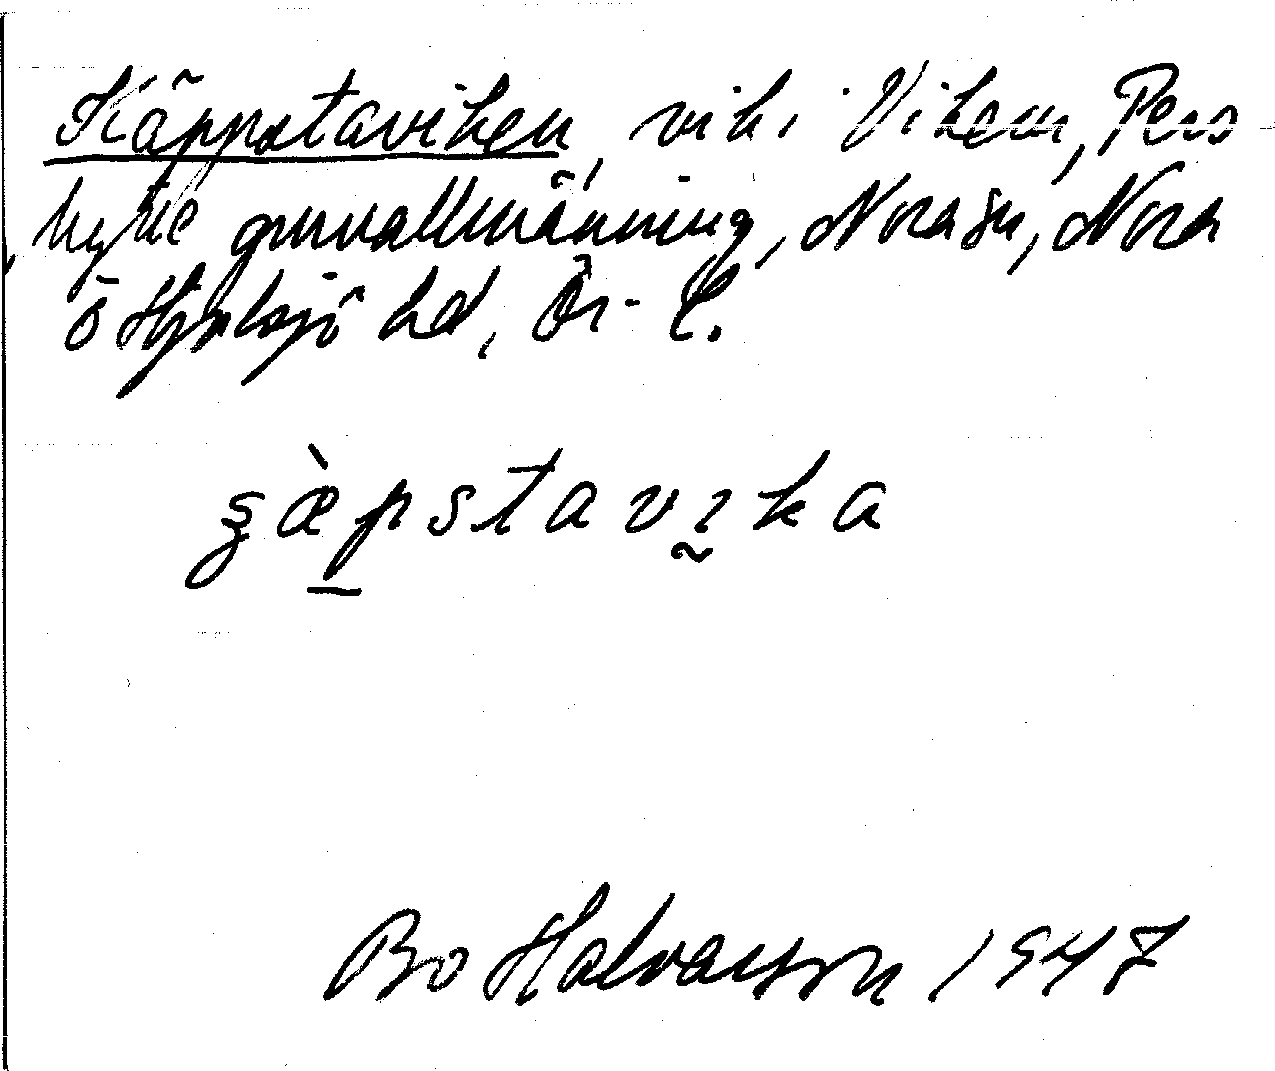 Käppstaviken, vik i Viken, Pers
hytte gruvallmänning, Nora sn, Nora
o Hjulsjö hd, Ör. l.
ʂæ̀pstavıka
Bo Halvarsson 1947